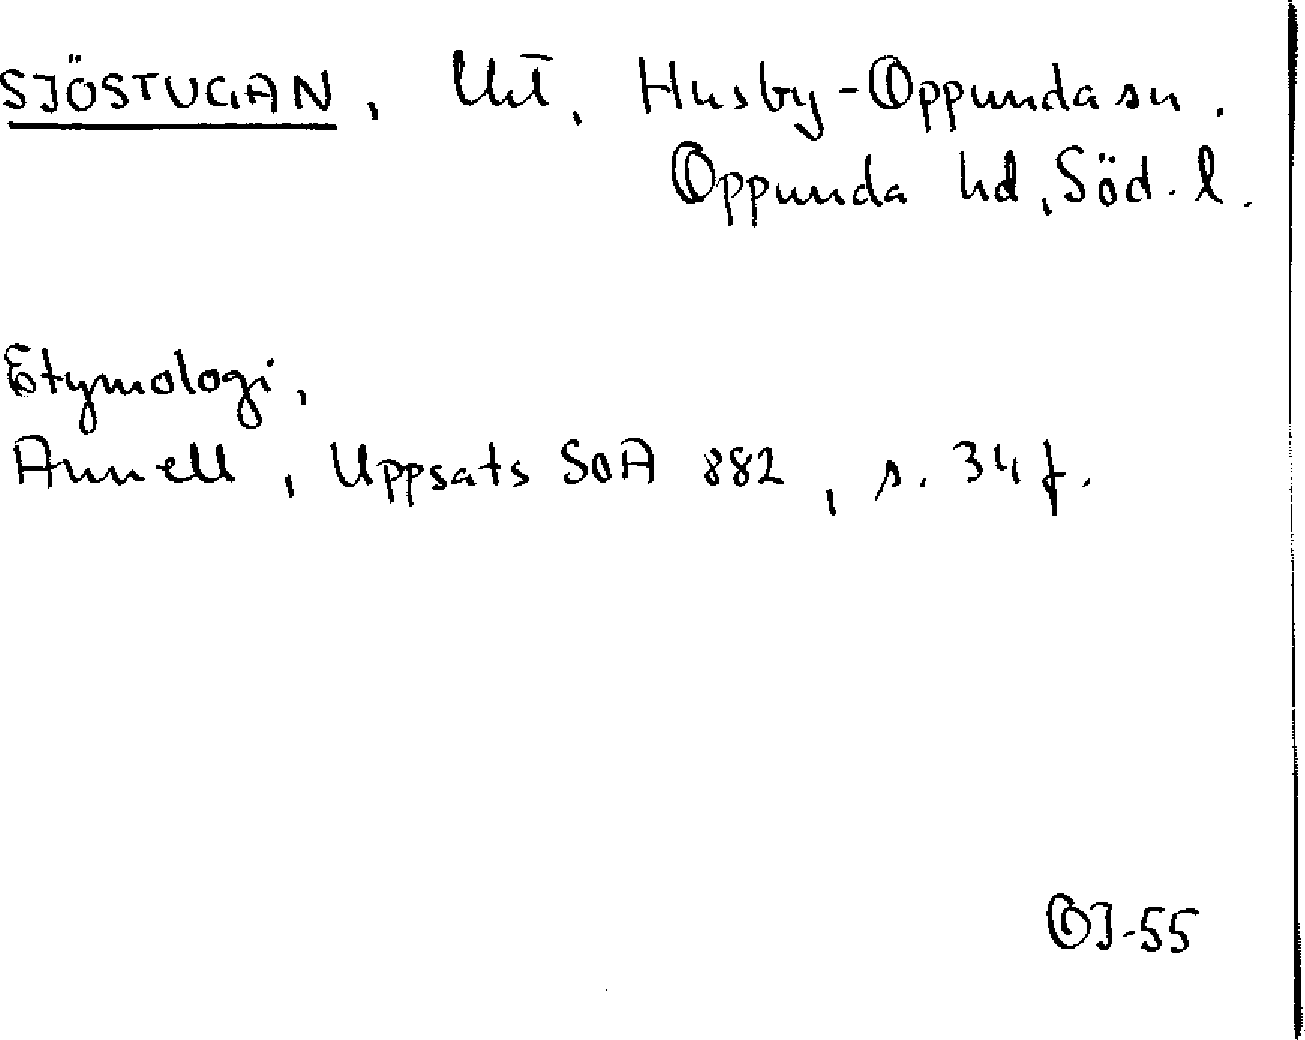 SJÖSTUGAN, Utī, Husby-Oppunda sn.
Oppunda hd, Söd. l.
Etymologi,
Annell, Uppsats SOA 882, s. 34 f.
OJ-55